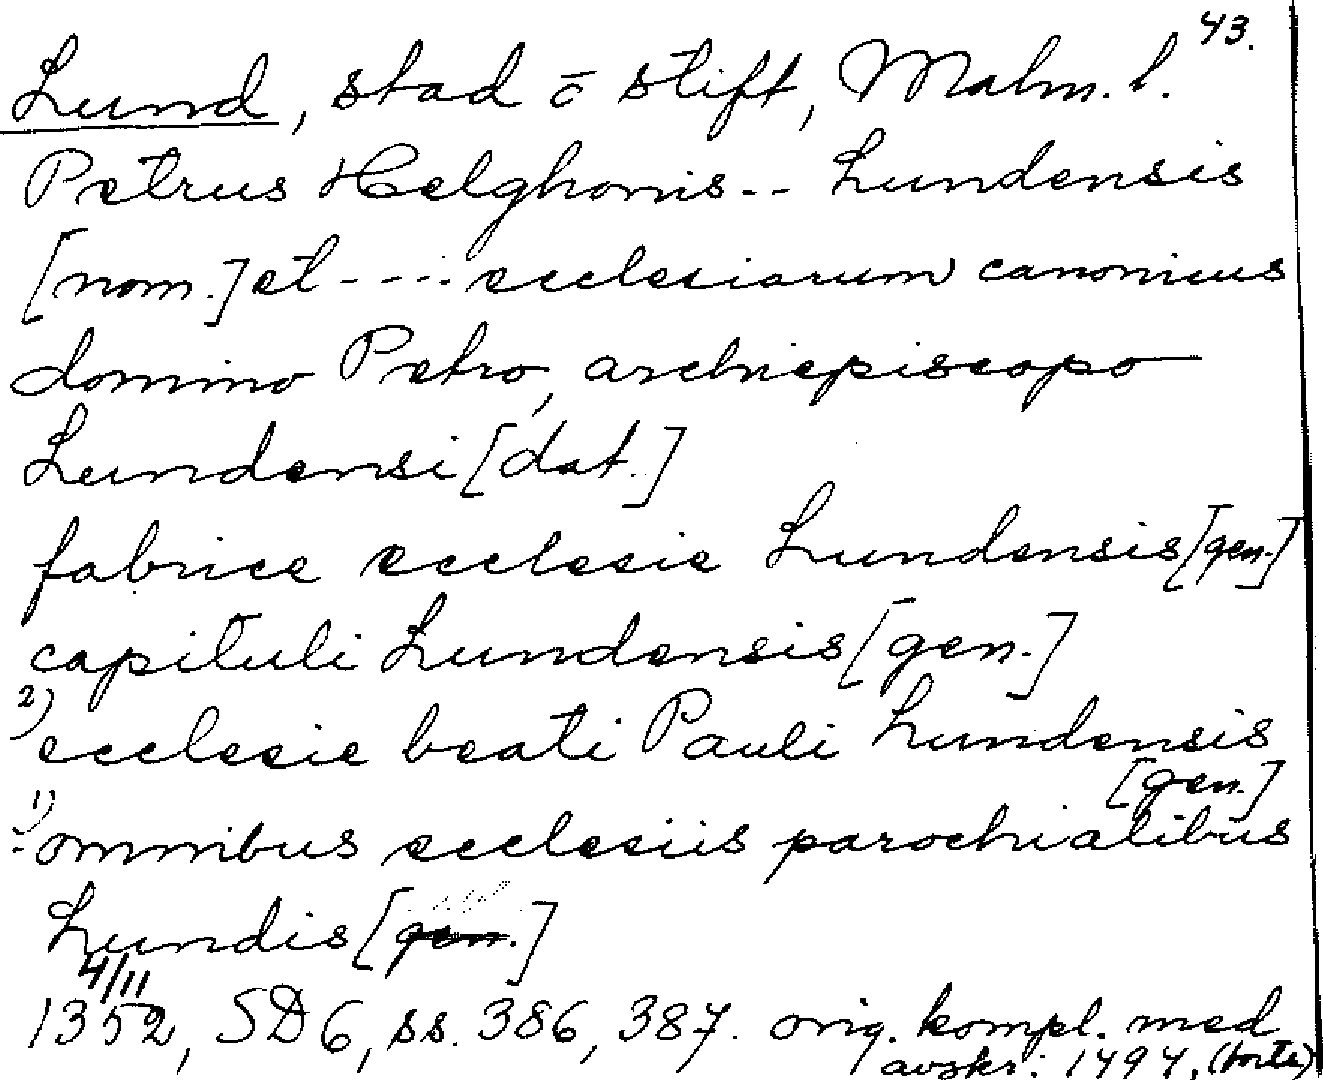 43.
Lund, stad o stift, Malm. l.
Petrus Helghonis -- Lundensis
[nom.] et ---- ecclesiarum canonicus
domino Petro, archiepiscopo
Lundensi [dat.]
fabrice ecclesie Lundensis [gen.]
capituli Lundensis [gen.]
2) ecclesie beati Pauli Lundensis
[gen.]
1) omnibus ecclesiis parochialibus
Lundis [gen.]
4/11
1352, SD 6, ss. 386, 387. orig. kompl. med
avskr: 1494,